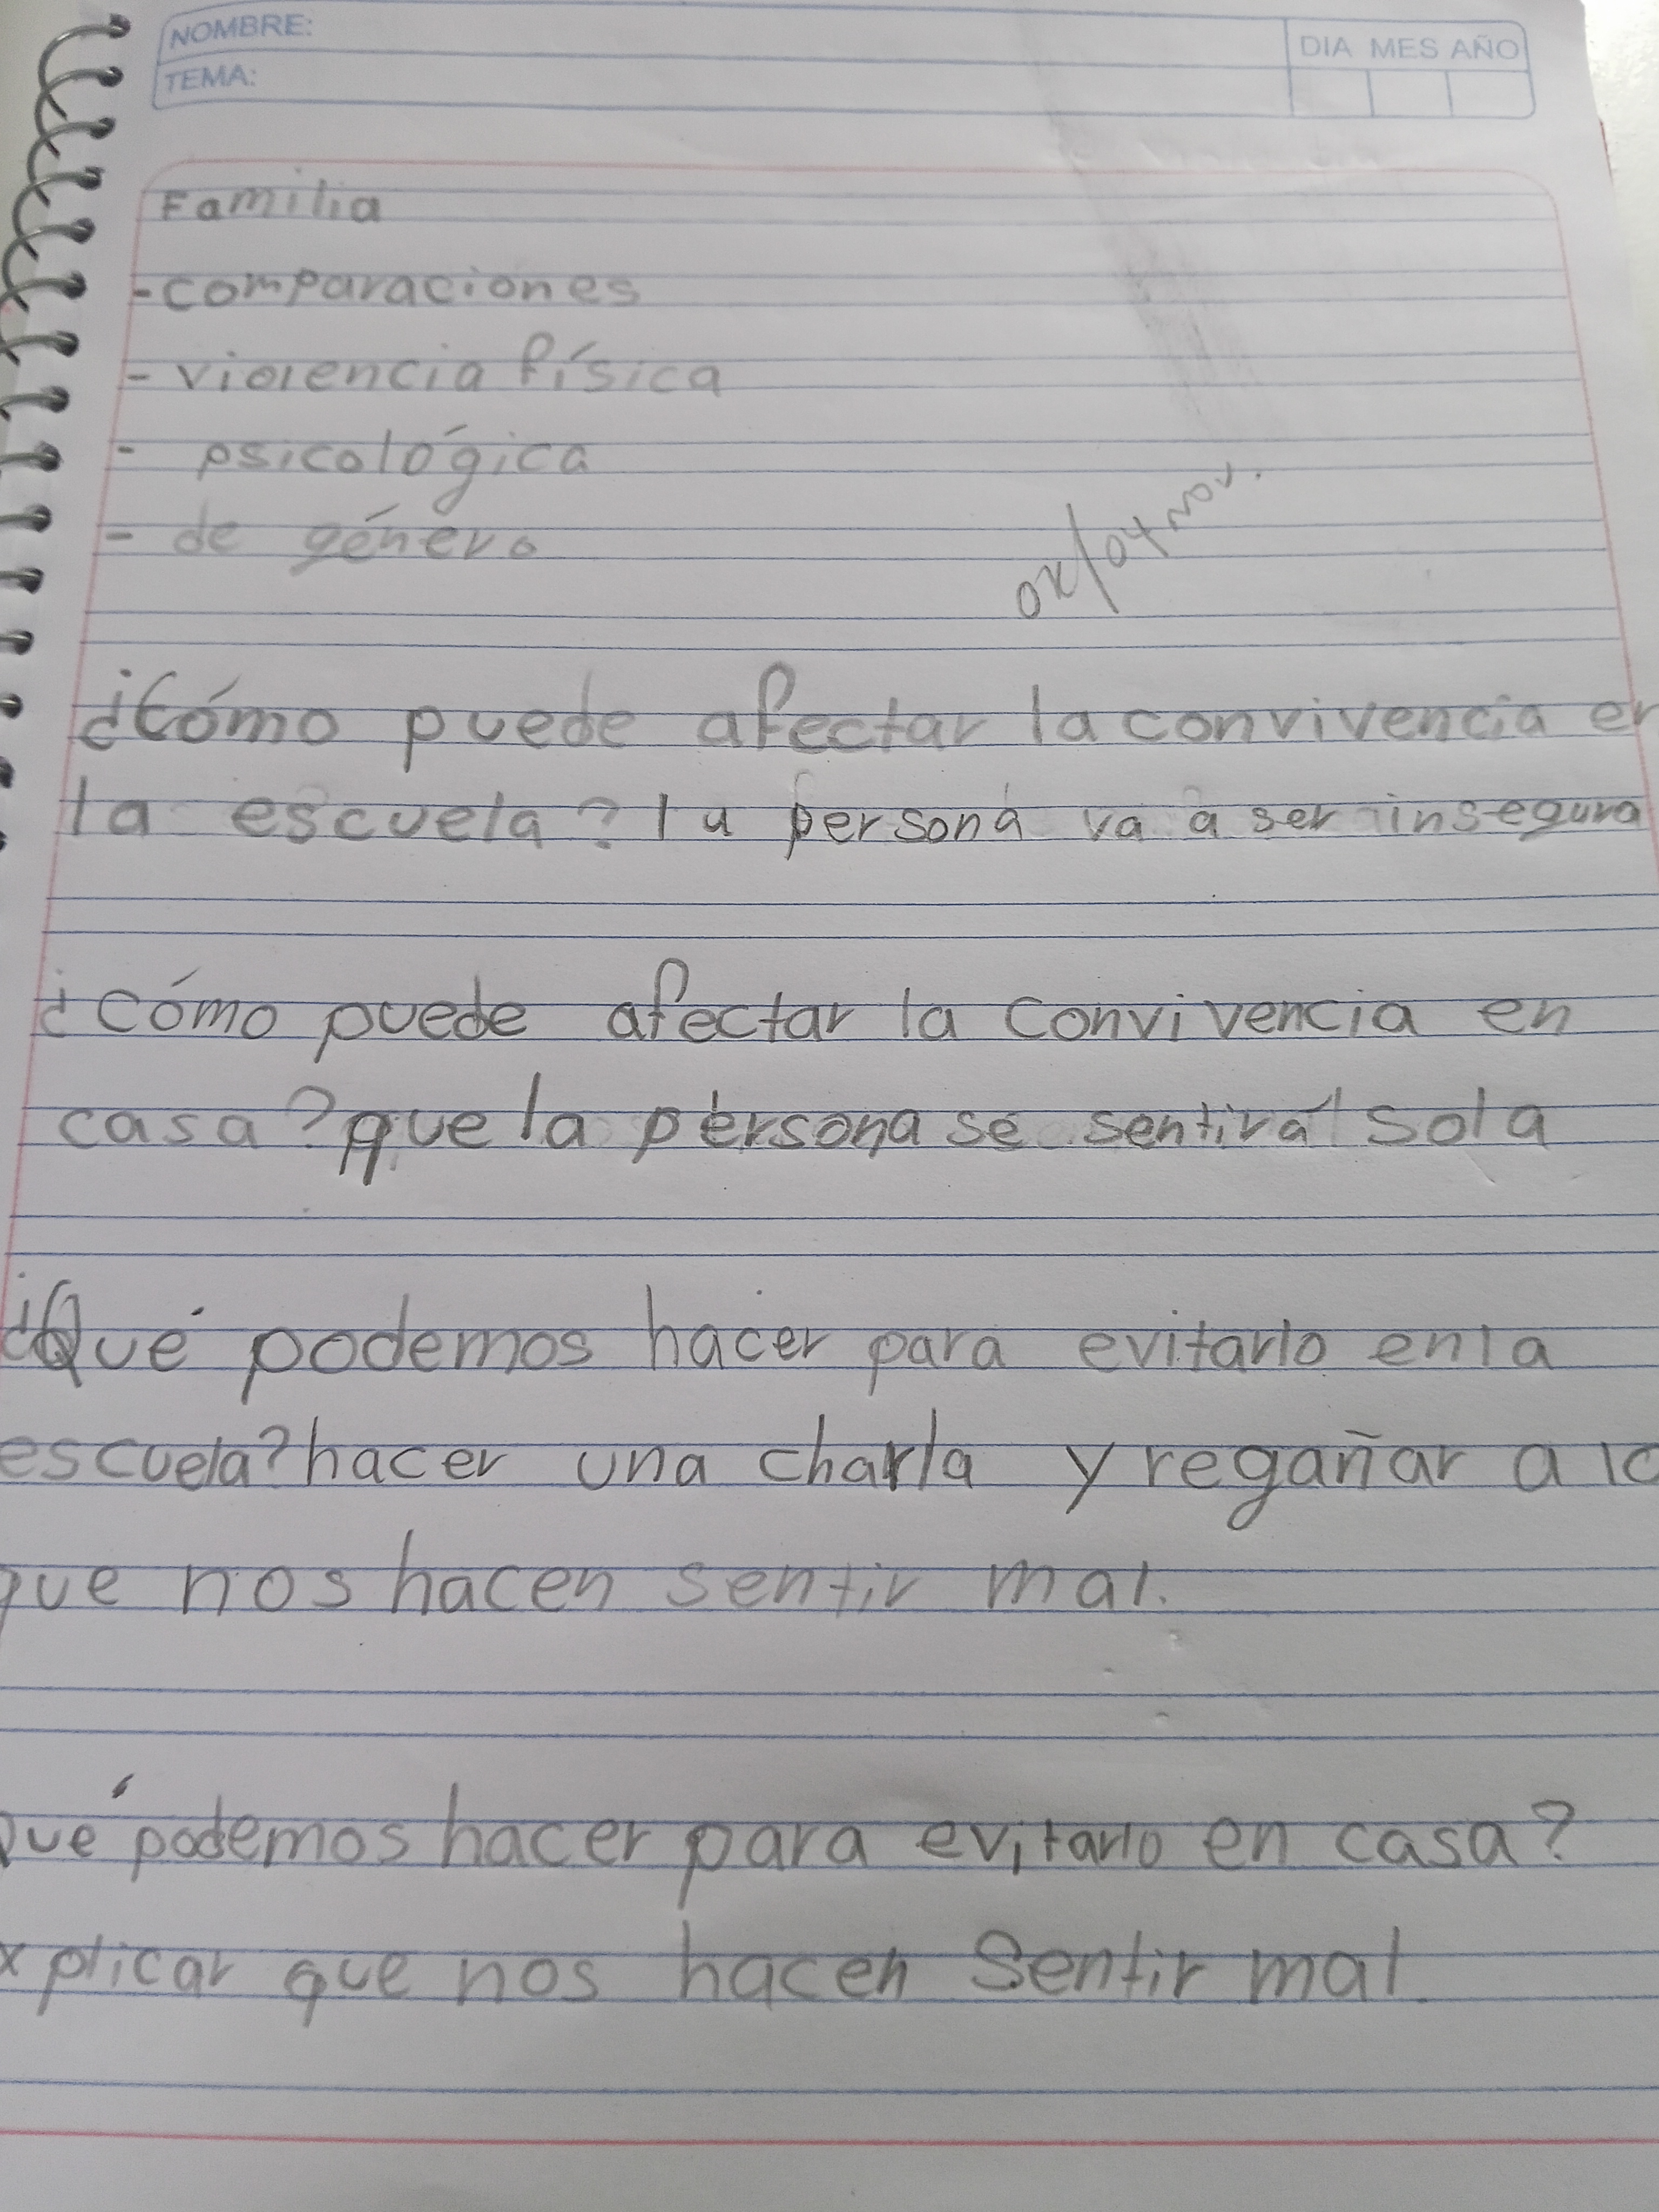 NOMBRE:
DIA MES AÑO
TEMA:
Familia
- comparaciones
- violencia física
- psicológica
- de género
OK/04 Nov.
¿Cómo puede afectar la convivencia en
la escuela? la persona va a ser insegura
¿Cómo puede afectar la convivencia en
casa? que la persona se sentirá sola
¿Qué podemos hacer para evitarlo en la
escuela? hacer una charla y regañar a lo
que nos hacen sentir mal.
Qué podemos hacer para evitarlo en casa?
xplicar que nos hacen sentir mal.